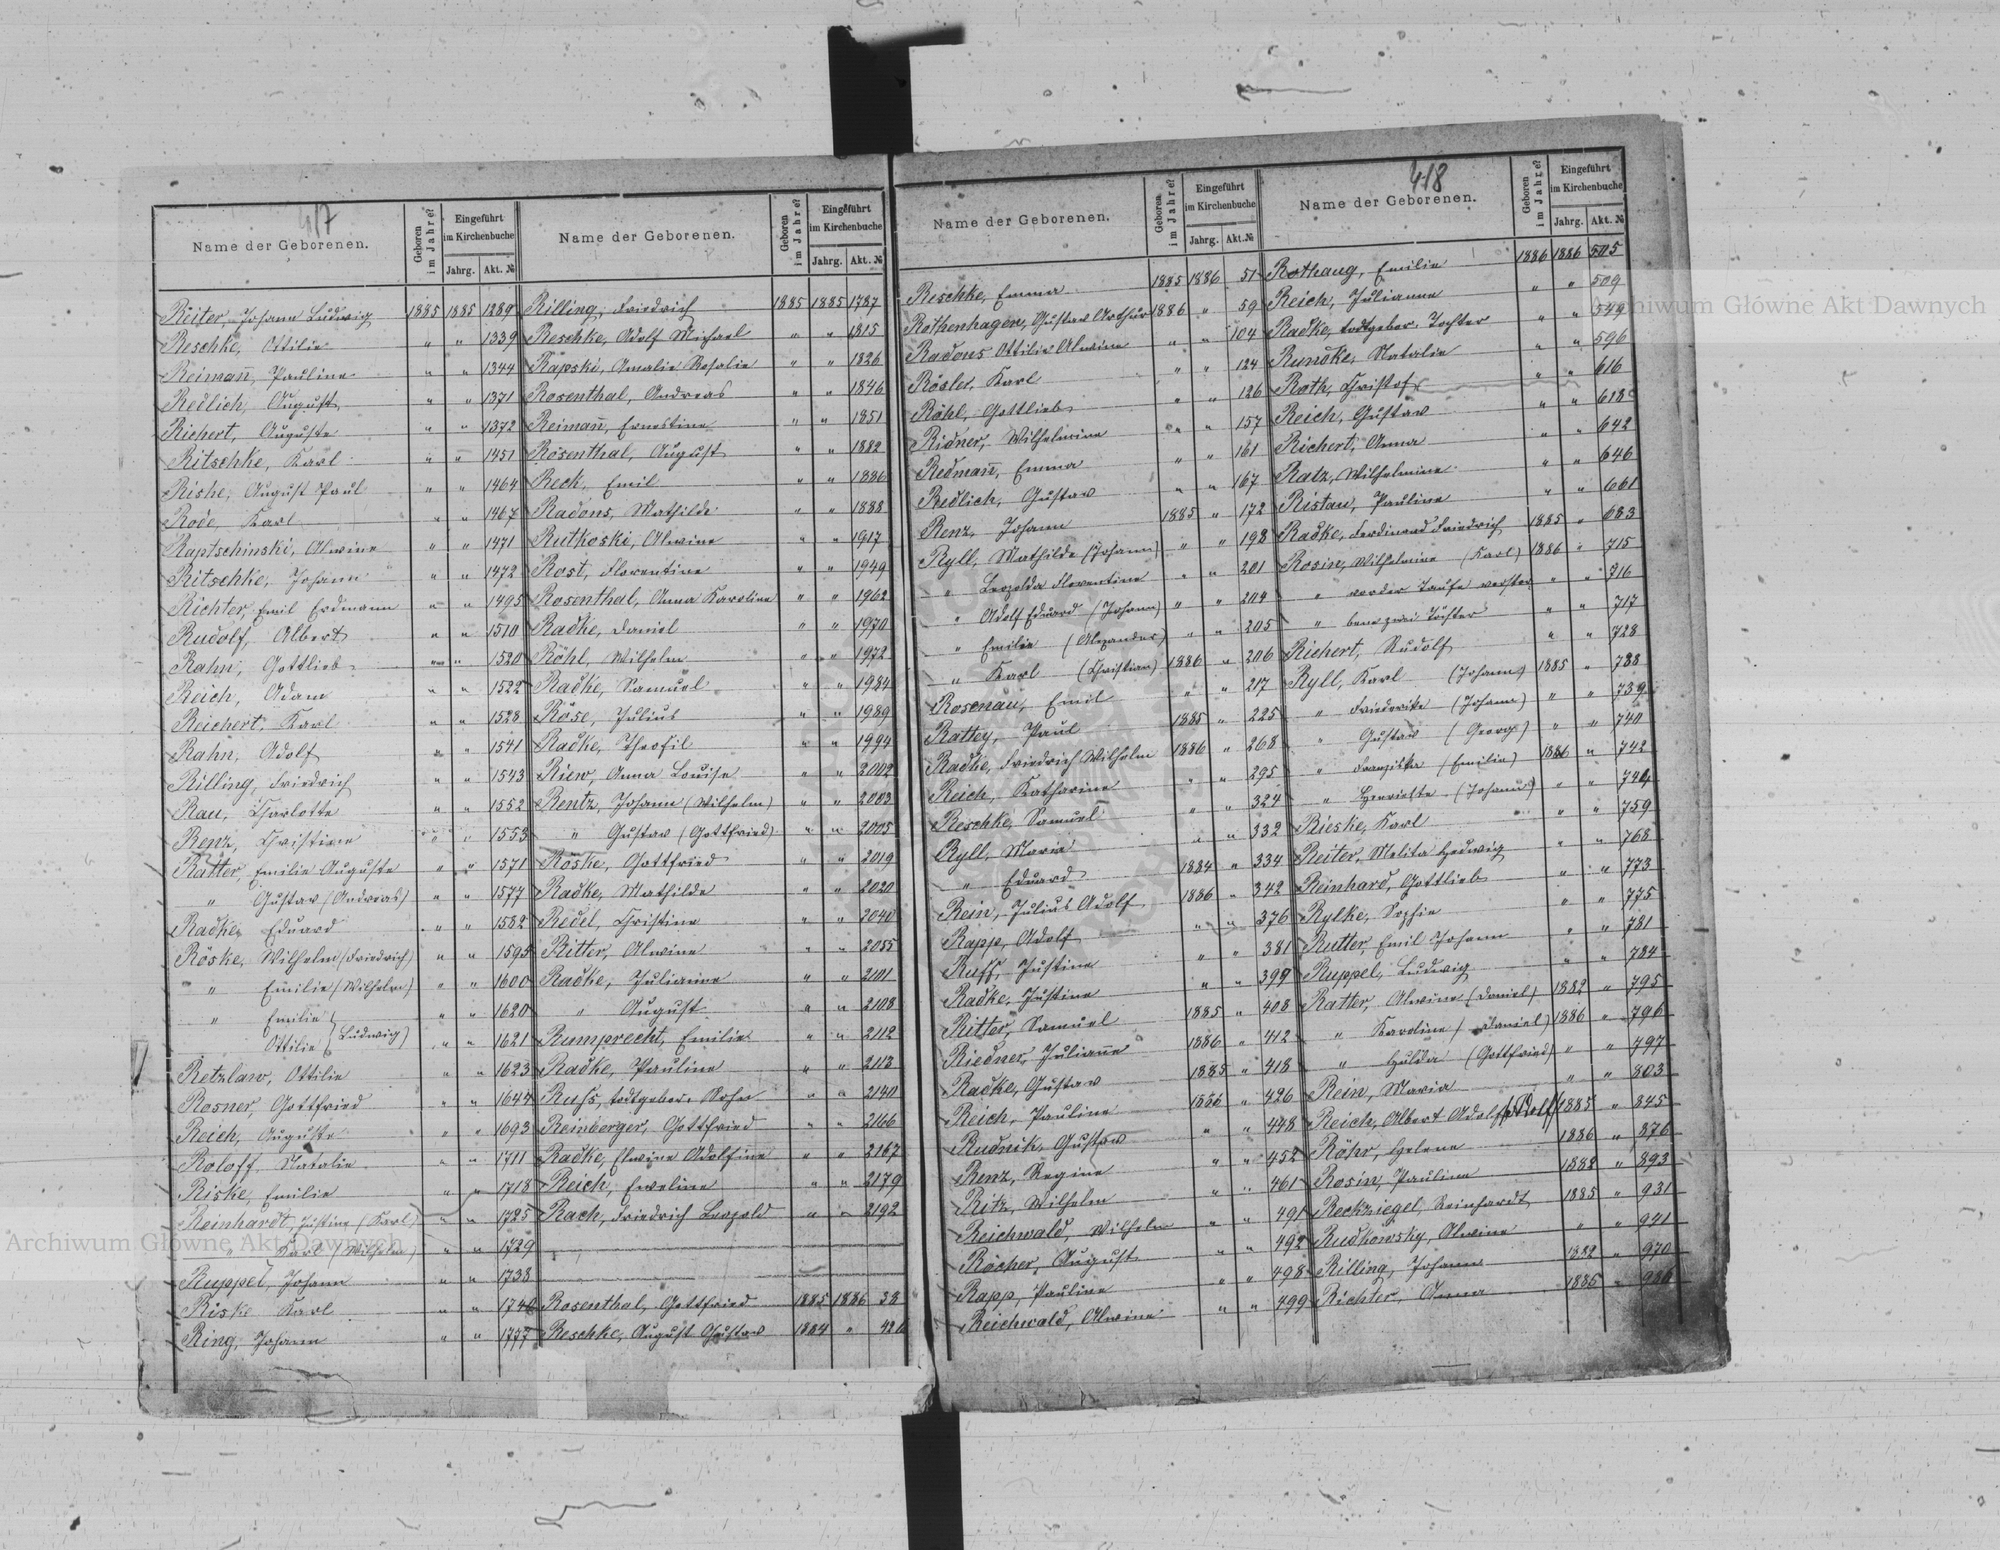 417
Name der Geborenen. Geboren im Jahre? Eingeführt im Kirchenbuche Jahrg. Akt. №
Reiter, Johann Ludwig 1885 1885 1289
Reschke, Ottilie " " 1339
Reimañ, Pauline " " 1344
Redlich, August " " 1371
Richert, Auguste " " 1372
Ritschke, Karl " " 1451
Rishe, August Paul " " 1464
Rode, Karl " " 1467
Raptschinski, Alwine " " 1471
Ritschke, Johann " " 1472
Richter, Emil Erdmann " " 1495
Rudolf, Albert " " 1510
Rahn, Gottlieb " " 1520
Reich, Adam " " 1522
Reichert, Karl " " 1528
Rahn, Adolf " " 1541
Rilling, Friedrich " " 1543
Rau, Charlotte " " 1552
Renz, Christine " " 1553
Ratter, Emilie Auguste " " 1571
" Gustav (Andreas) " " 1577
Radke, Eduard " " 1582
Röske, Wilhelm (Friedrich) " " 1595
" Emilie (Wilhelm) " " 1600
" Emilie " " 1620
Ottilie (Ludwig) " " 1621
Retzlaw, Ottilie " " 1623
Rosner, Gottfried " " 1644
Reich, Auguste " " 1693
Roloff, Natalie " " 1711
Riske, Emilie " " 1718
Reinhardt, Justine (Karl) " " 1725
" Karl (Wilhelm) " " 1729
Ruppel, Johann " " 1738
Riske Karl " "
Ring, Johann " " 1777
Name der Geborenen. Geboren im Jahre? Eingeführt im Kirchenbuche Jahrg. Akt. №
Rilling, Friedrich 1885 1885 1787
Reschke, Adolf Michael " " 1815
Rapski, Amalie Rosalie " " 1826
Rosenthal, Andreas " " 1846
Reimañ, Ernestine " " 1851
Rosenthal, August " " 1882
Reck, Emil " " 1886
Radons, Mathilde " " 1888
Rutkoski, Alwine " " 1917
Rost, Florentine " " 1949
Rosenthal, Anna Karoline " " 1962
Radke, Daniel " " 1970
Röhl, Wilhelm " " 1972
Radke, Samuel " " 1984
Röse, Julius " " 1989
Radke, Theofil " " 1994
Riew, Anna Louise " " 2002
Rentz, Johann (Wilhelm) " " 2003
" Gustav (Gottfried) " " 2005
Röske, Gottfried " " 2019
Radke, Mathilde " " 2020
Redel, Christine " " 2040
Ritter, Alwine " " 2055
Radke, Julianne " " 2101
" August " " 2108
Rumprecht, Emilie " " 2112
Radke, Pauline " " 2113
Ruhs, todtgebor. Sohn " " 2140
Reinberger, Gottfried " " 2166
Radke, Elwine Adolfine " " 2167
Reich, Eweline " " 2179
Rach, Friedrich Leopold " " 2192
Rosenthal, Gottfried 1885 1886 38
Reschke, August Gustav 1884 " 42
Name der Geborenen. Geboren im Jahre? Eingeführt im Kirchenbuche Jahrg. Akt. №
Reschke, Emma 1885 1886 51
Rothenhagen, Gustav Arthur 1886 " 59
Radons Ottilie Alwine " " 104
Rösler, Karl " " 124
Röhl, Gottlieb " " 126
Ridner, Wilhelmine " " 157
Redmañ, Emma " " 161
Redlich, Gustav " " 167
Renz, Johann 1885 " 172
Ryll, Mathilde (Johann) " " 198
" Leopolda Florentine " " 201
" Adolf Eduard (Johann) " " 204
" Emilie (Alexander) " " 205
" Karl (Christian) 1886 " 206
Rosenau, Emil " " 217
Rattey, Paul 1885 " 225
Radke, Friedrich Wilhelm 1886 " 268
Reich, Katharine " " 295
Reschke, Samuel " " 324
Ryll, Maria " " 332
" Eduard 1884 " 334
Rein, Julius Adolf 1886 " 342
Rapp, Adolf " " 376
Ruff, Justine " " 381
Radke, Justine " " 399
Ritter, Samuel 1885 " 408
Riedner, Julianne 1886 " 412
Radke, Gustav 1885 " 418
Reich, Pauline 1886 " 426
Rudnik, Gustav " " 448
Renz, Regine " " 452
Ritz, Wilhelm " " 461
Reichwald, Wilhelm " " 491
Röcher, August " " 492
Rapp, Pauline " " 498
Reichwald, Alwine " " 499
418
Name der Geborenen. Geboren im Jahre? Eingeführt im Kirchenbuche Jahrg. Akt. №
Rothaug, Emilie 1886 1886 505
Reich, Julianne " " 509
Radke, todtgebor. Tochter " " 549
Rundke, Natalie " " 596
Roth, Christof " " 616
Reich, Gustav " " 618
Richert, Anna " " 642
Ratz, Wilhelmine " " 646
Ristau, Pauline " " 661
Radke, Ferdinand Friedrich 1885 " 683
Rosin, Wilhelmine (Karl) 1886 " 715
" vor der Taufe verstor " " 716
" bene zwei Töchter " " 717
Richert, Rudolf " " 728
Ryll, Karl (Johann) 1885 " 738
" Friederike (Johann) " " 739
" Gustav (Georg) " " 740
" Franziska (Emilie) 1886 " 742
" Henriette (Johann) " " 744
Rieske, Karl " " 759
Reiter, Melita Hedwig " " 768
Reinhard, Gottlieb " " 773
Rylke, Sophie " " 775
Rutter, Emil Johann " " 781
Ruppel, Ludwig " " 784
Ratter, Alwine (Daniel) 1882 " 795
" Karoline (Daniel) 1886 " 796
" Hulda (Gottfried) " " 797
Rein, Maria " " 803
Reich, Albert Adolf (Adolf) 1885 " 845
Röhr, Helene 1886 " 876
Rosin, Pauline 1882 " 893
Reckziegel, Reinhardt 1885 " 931
Rudkowsky, Alwine " " 941
Rilling, Johann 1882 " 970
Richter, Anna 1885 " 986
Archiwum Główne Akt Dawnych
Archiwum Główne Akt Dawnych